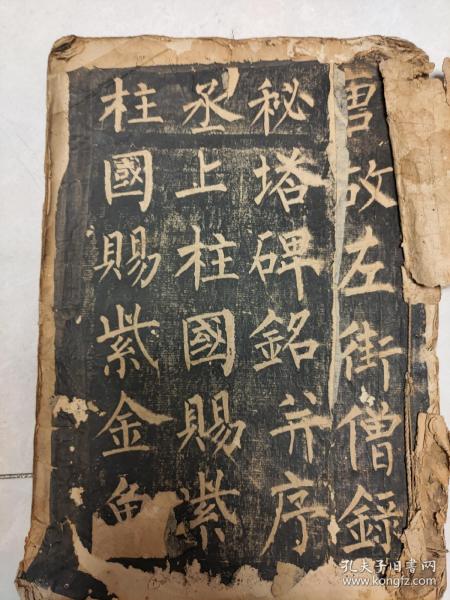 唐故左街僧錄
秘塔碑銘并序
丞上柱國賜紫
柱國賜紫金魚
孔夫子旧书网
www.kongfz.com